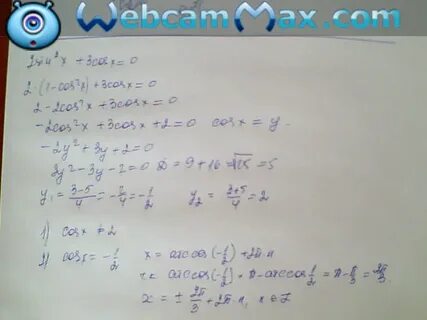 WebcamMax.com
2sin²x + 3cosx = 0
2·(1-cos²x) + 3cosx = 0
2-2cos²x + 3cosx = 0
-2cos²x + 3cosx + 2 = 0 cosx = y
-2y² + 3y + 2 = 0
2y² - 3y - 2 = 0 D = 9 + 16 = √25 = 5
y₁ = (3-5)/4 = -2/4 = -1/2 y₂ = (3+5)/4 = 2
1) cosx ≠ 2
2) cosx = -1/2 x = arccos(-1/2) + 2π·n
arccos(-1/2) = π - arccos 1/2 = π - π/3 = 2π/3
x = ± 2π/3 + 2π·n, n ∈ Z